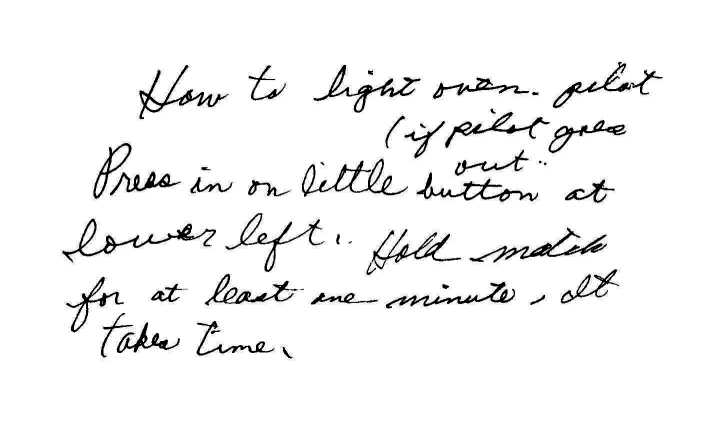 How to light oven. pilot
(if pilot goes
out..
Press in on little button at
lower left.. Hold match
for at least one minute, It
takes time.